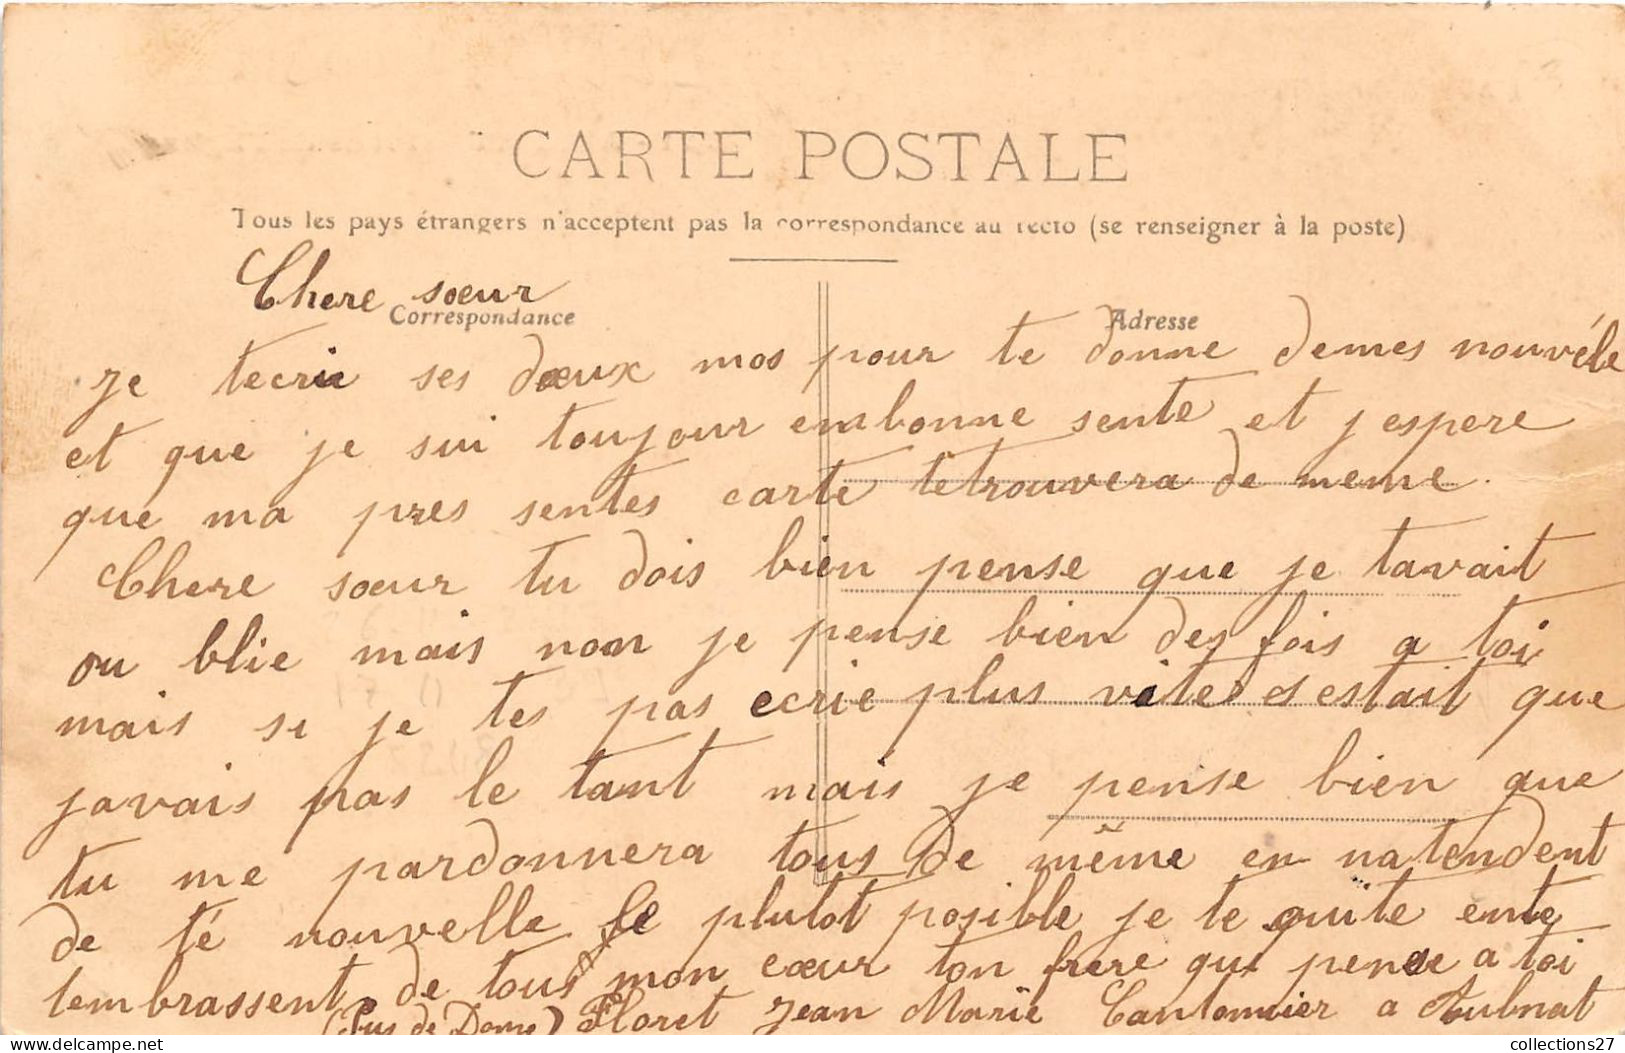 CARTE POSTALE
Tous les pays étrangers n'acceptent pas la correspondance au recto (se renseigner à la poste)
Chere sœur
Correspondance
Adresse
Je tecrie ses dœux mos pour te donne demes nouvéle
et que je sui toujour enbonne sente et jespere
que ma pres sentes carte tetrouvera de meme.
Chere sœur tu dois bien pense que je tavait
ou blie mais non je pense bien des fois a toi
mais si je tes pas ecrie plus vites sestait que
javais pas le tant mais je pense bien que
tu me pardonnera tous de même en natendent
de té nouvelle le plutot posible je te quite ente
tembrassent de tous mon cœur ton frere qui pense a toi
(Puy de Dome) Floret Jean Marie Cantonnier a Aubnat
collections27